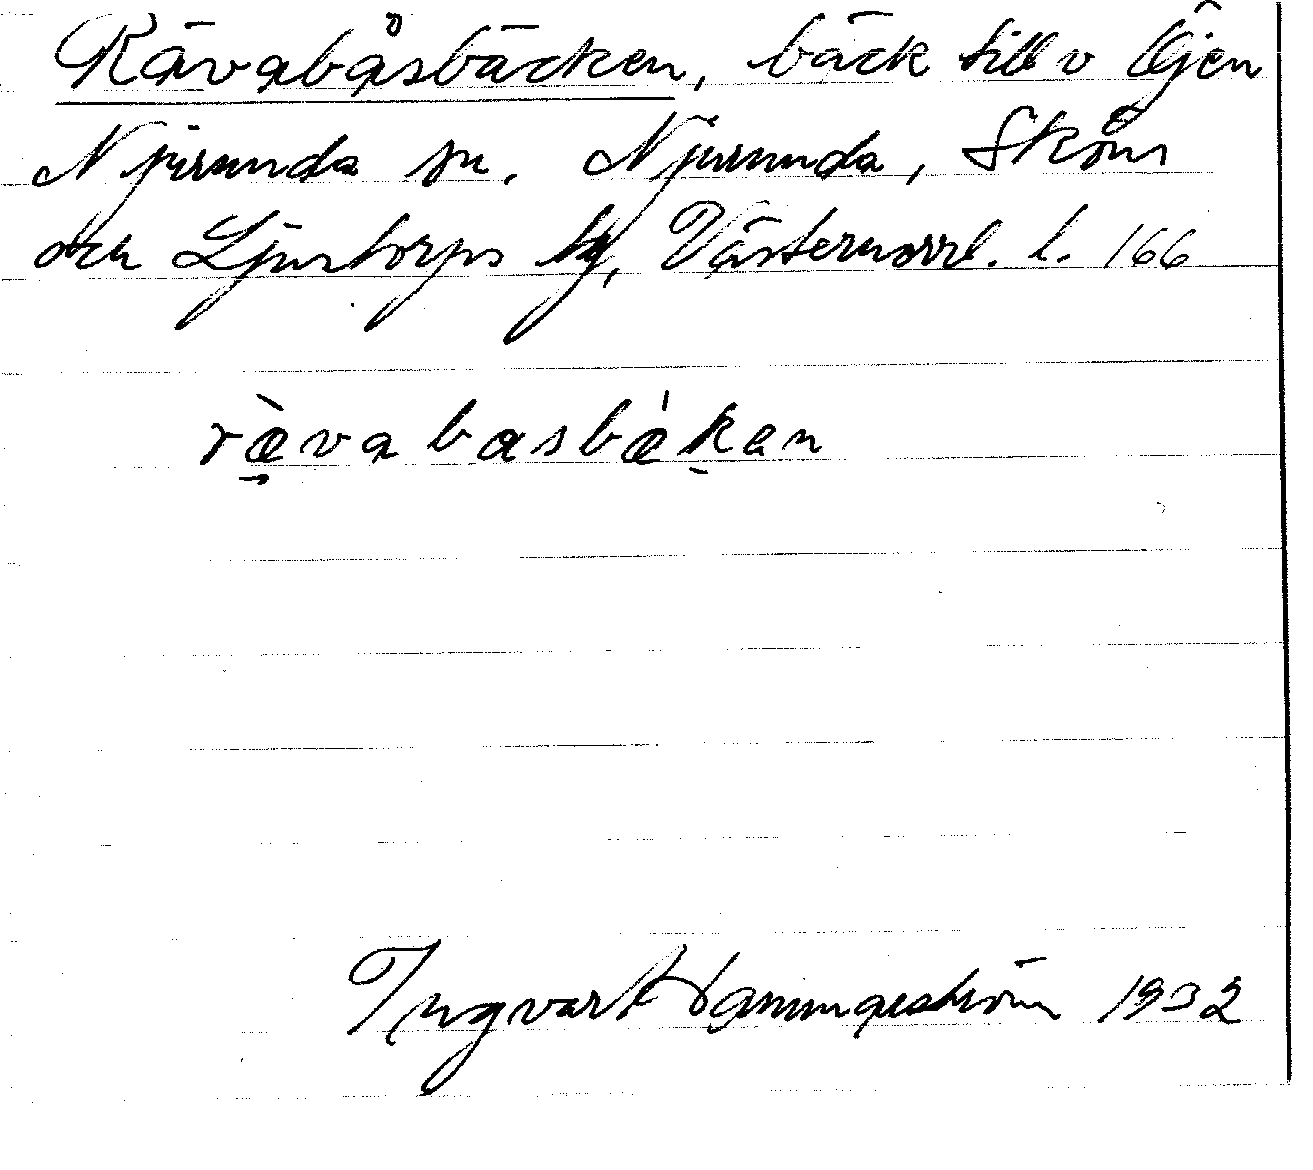 Rävabåsbäcken, bäck till v Öjen
Njurunda sn. Njurunda, Sköns
och Ljustorps tg, Västernorrl. l. 166
rävabasbäkan
Ingvar Hammarström 1932